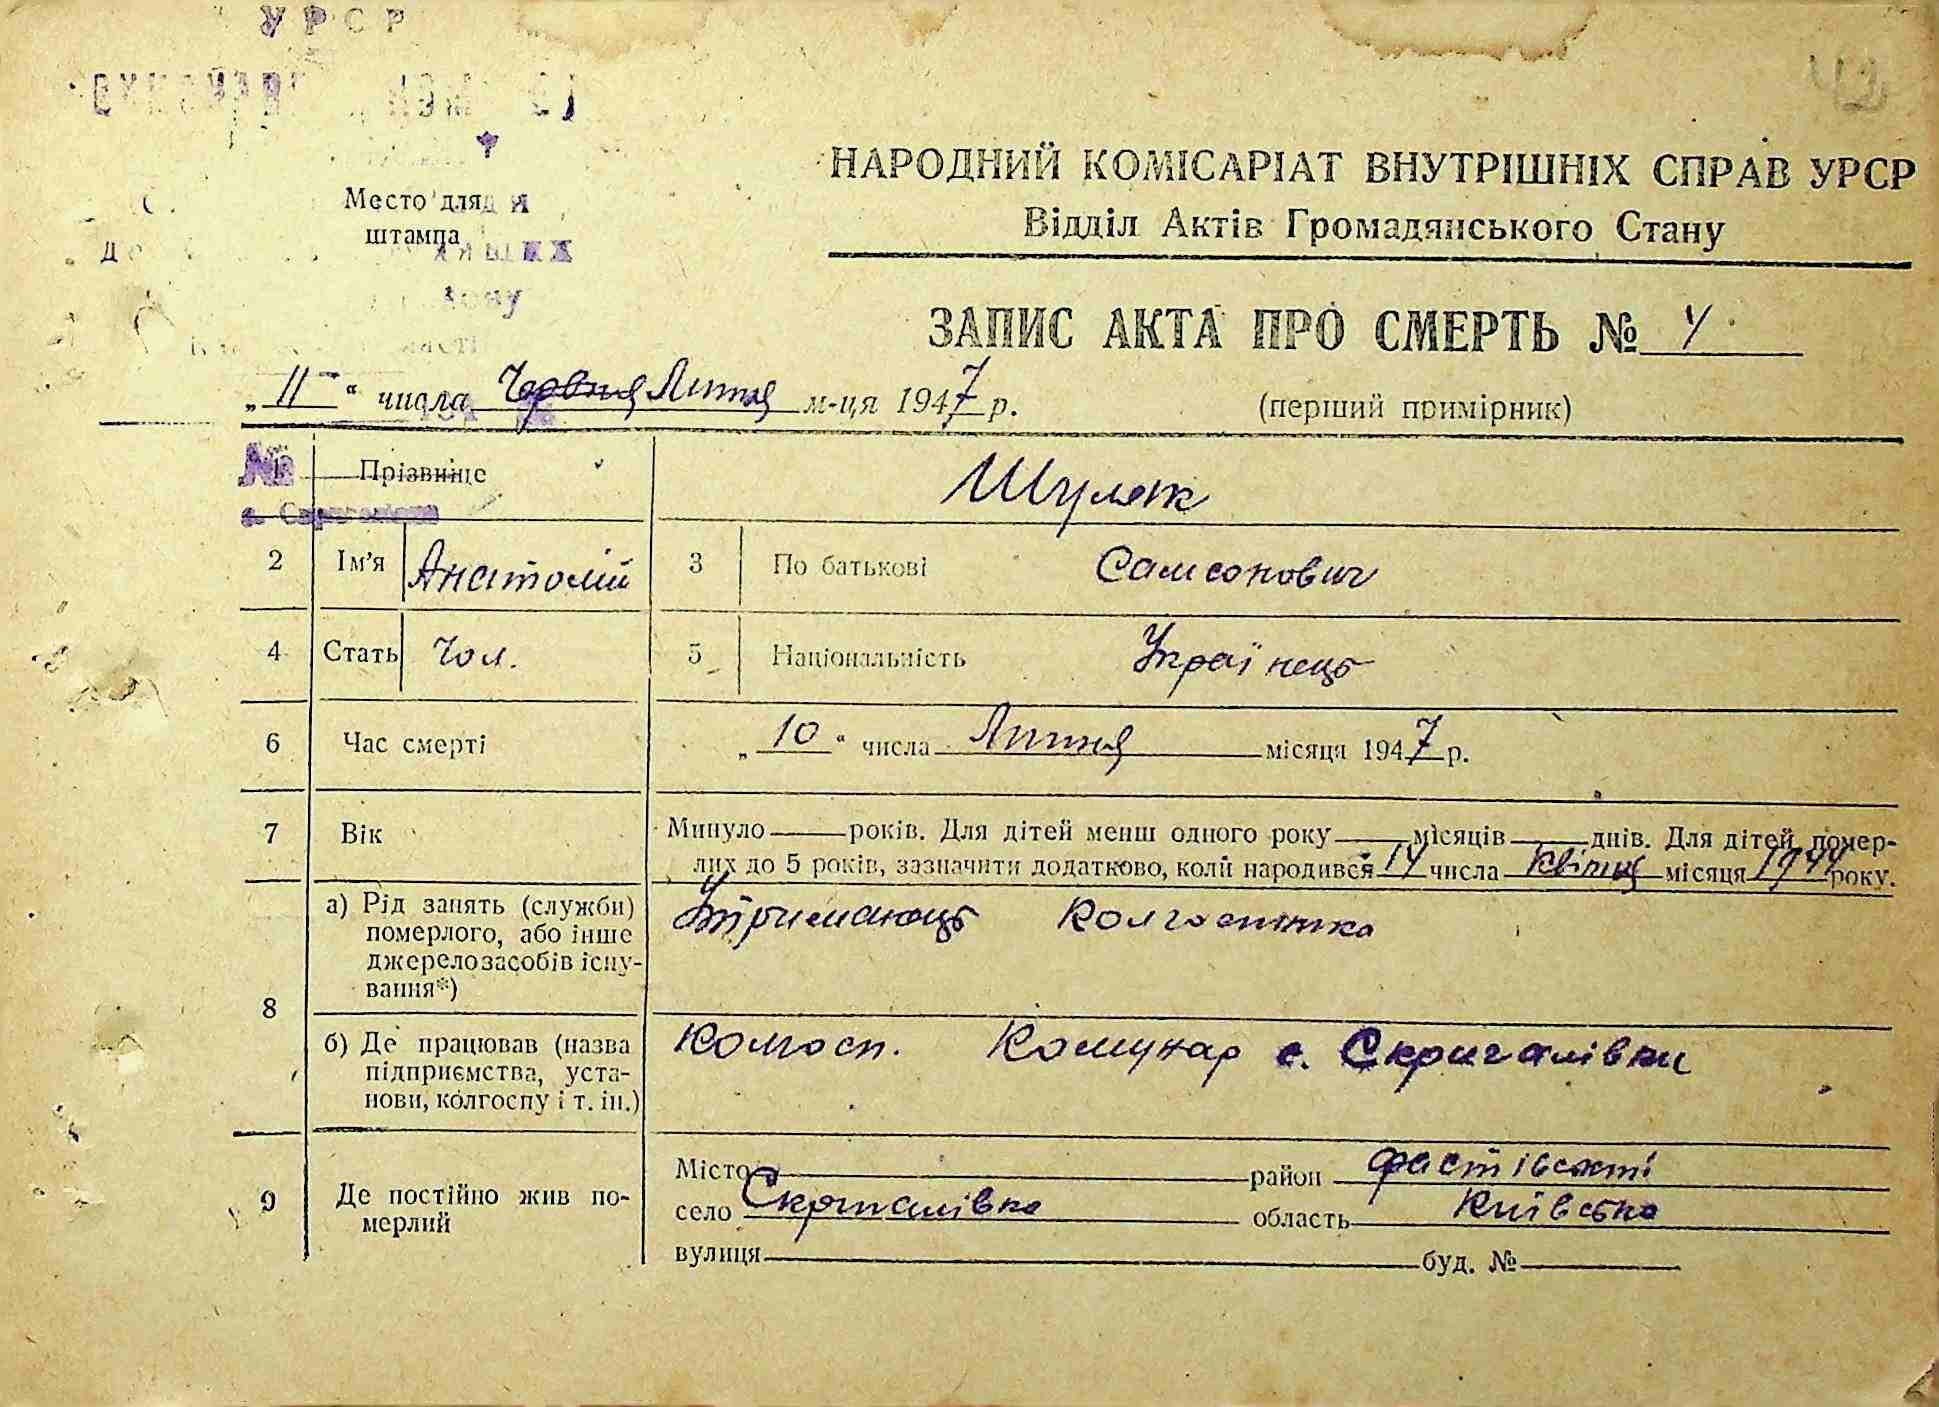 УРСР
42
Место для
штампа
НАРОДНИЙ КОМІСАРІАТ ВНУТРІШНІХ СПРАВ УРСР
Відділ Актів Громадянського Стану
ЗАПИС АКТА ПРО СМЕРТЬ № 4
„11“ числа Червня Липня м-ця 1947 р.
(перший примірник)
№
1 Прізвище Шуляк
2 Ім'я Анатолій 3 По батькові Самсонович
4 Стать Чол. 5 Національність Українець
6 Час смерті „10“ числа Липня місяця 1947 р.
7 Вік Минуло — років. Для дітей менш одного року — місяців — днів. Для дітей, помер-
лих до 5 років, зазначити додатково, коли народився 14 числа Квітня місяця 1944 року.
8 а) Рід занять (служби)
померлого, або інше
джерело засобів існу-
вання*)
Утриманець Колгоспника
б) Де працював (назва
підприємства, уста-
нови, колгоспу і т. ін.)
Колгосп. Комунар с. Скригалівки
9 Де постійно жив по-
мерлий
Місто район Фастівський
село Скригалівка область Київська
вулиця буд. №